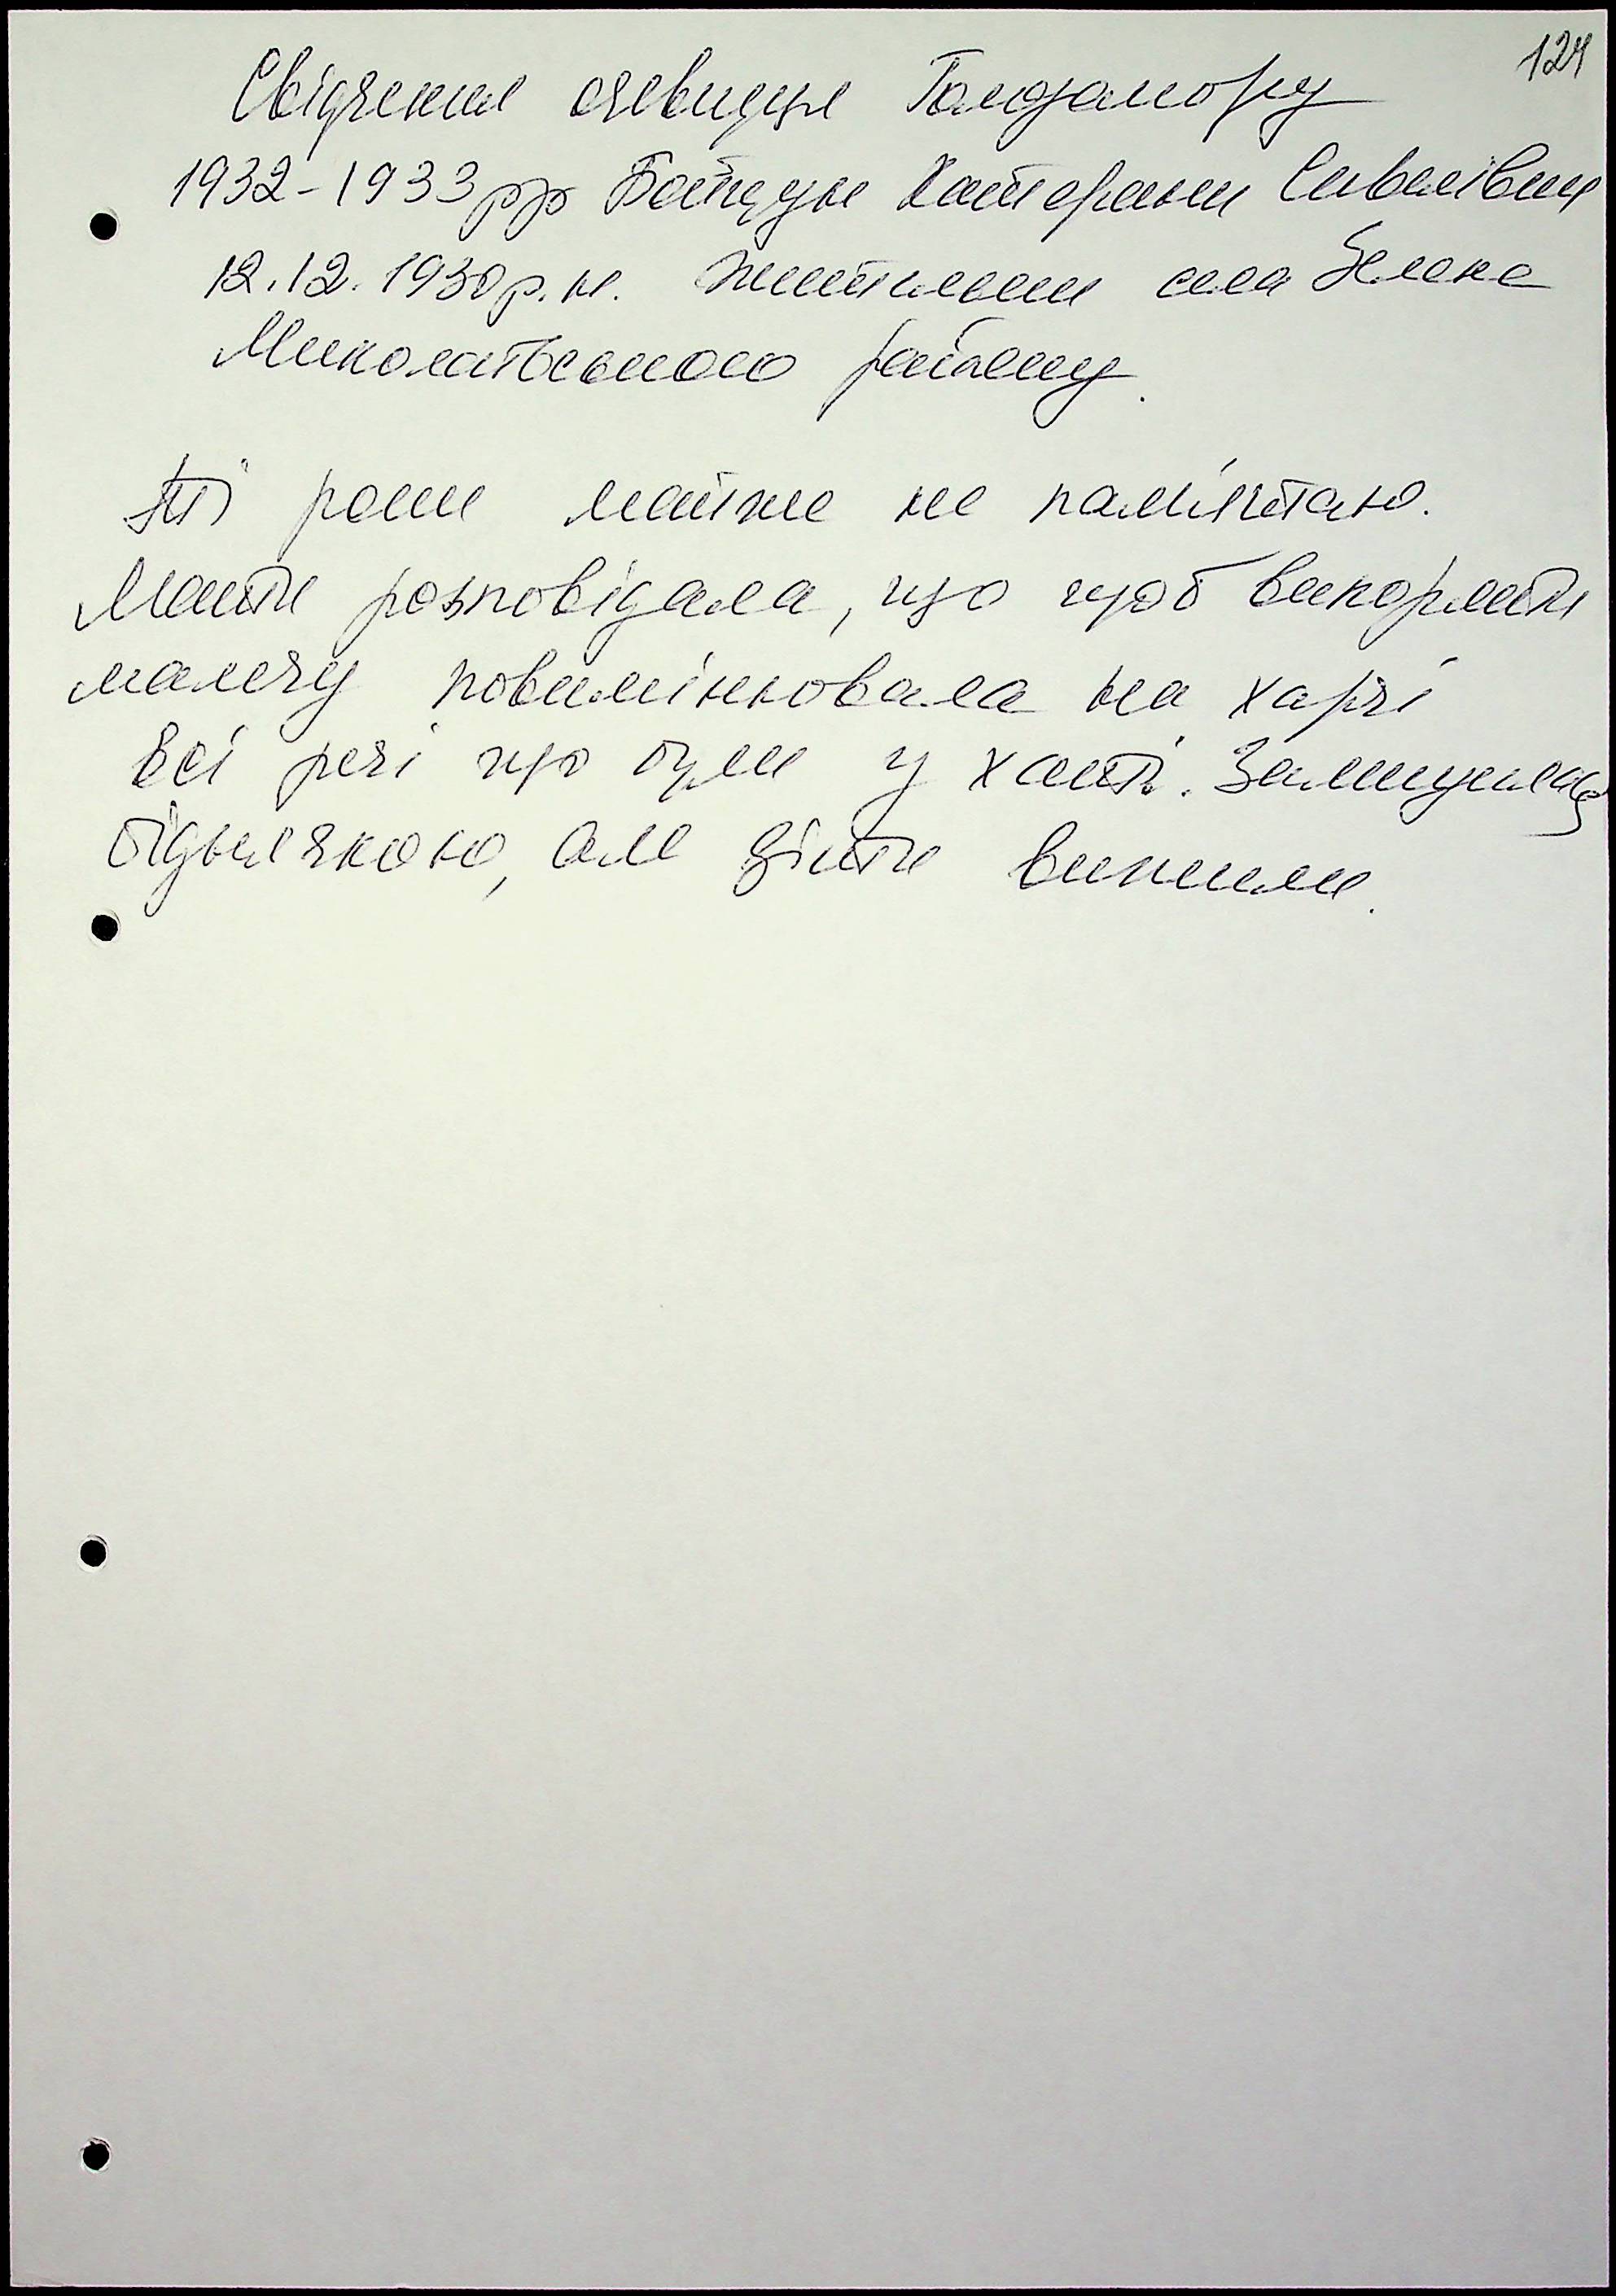 124
Свідчення очевидця Голодомору
1932-1933 рр Катерини Савеліївни
12.12.1930 р.н. жительки села Зелене
Миколаївського району.
Ті роки майже не пам'ятаю.
Мати розповідала, що щоб викормити
малечу повимінювала на харчі
всі речі що були у хаті. Залишилась
біднячкою, але діти вижили.